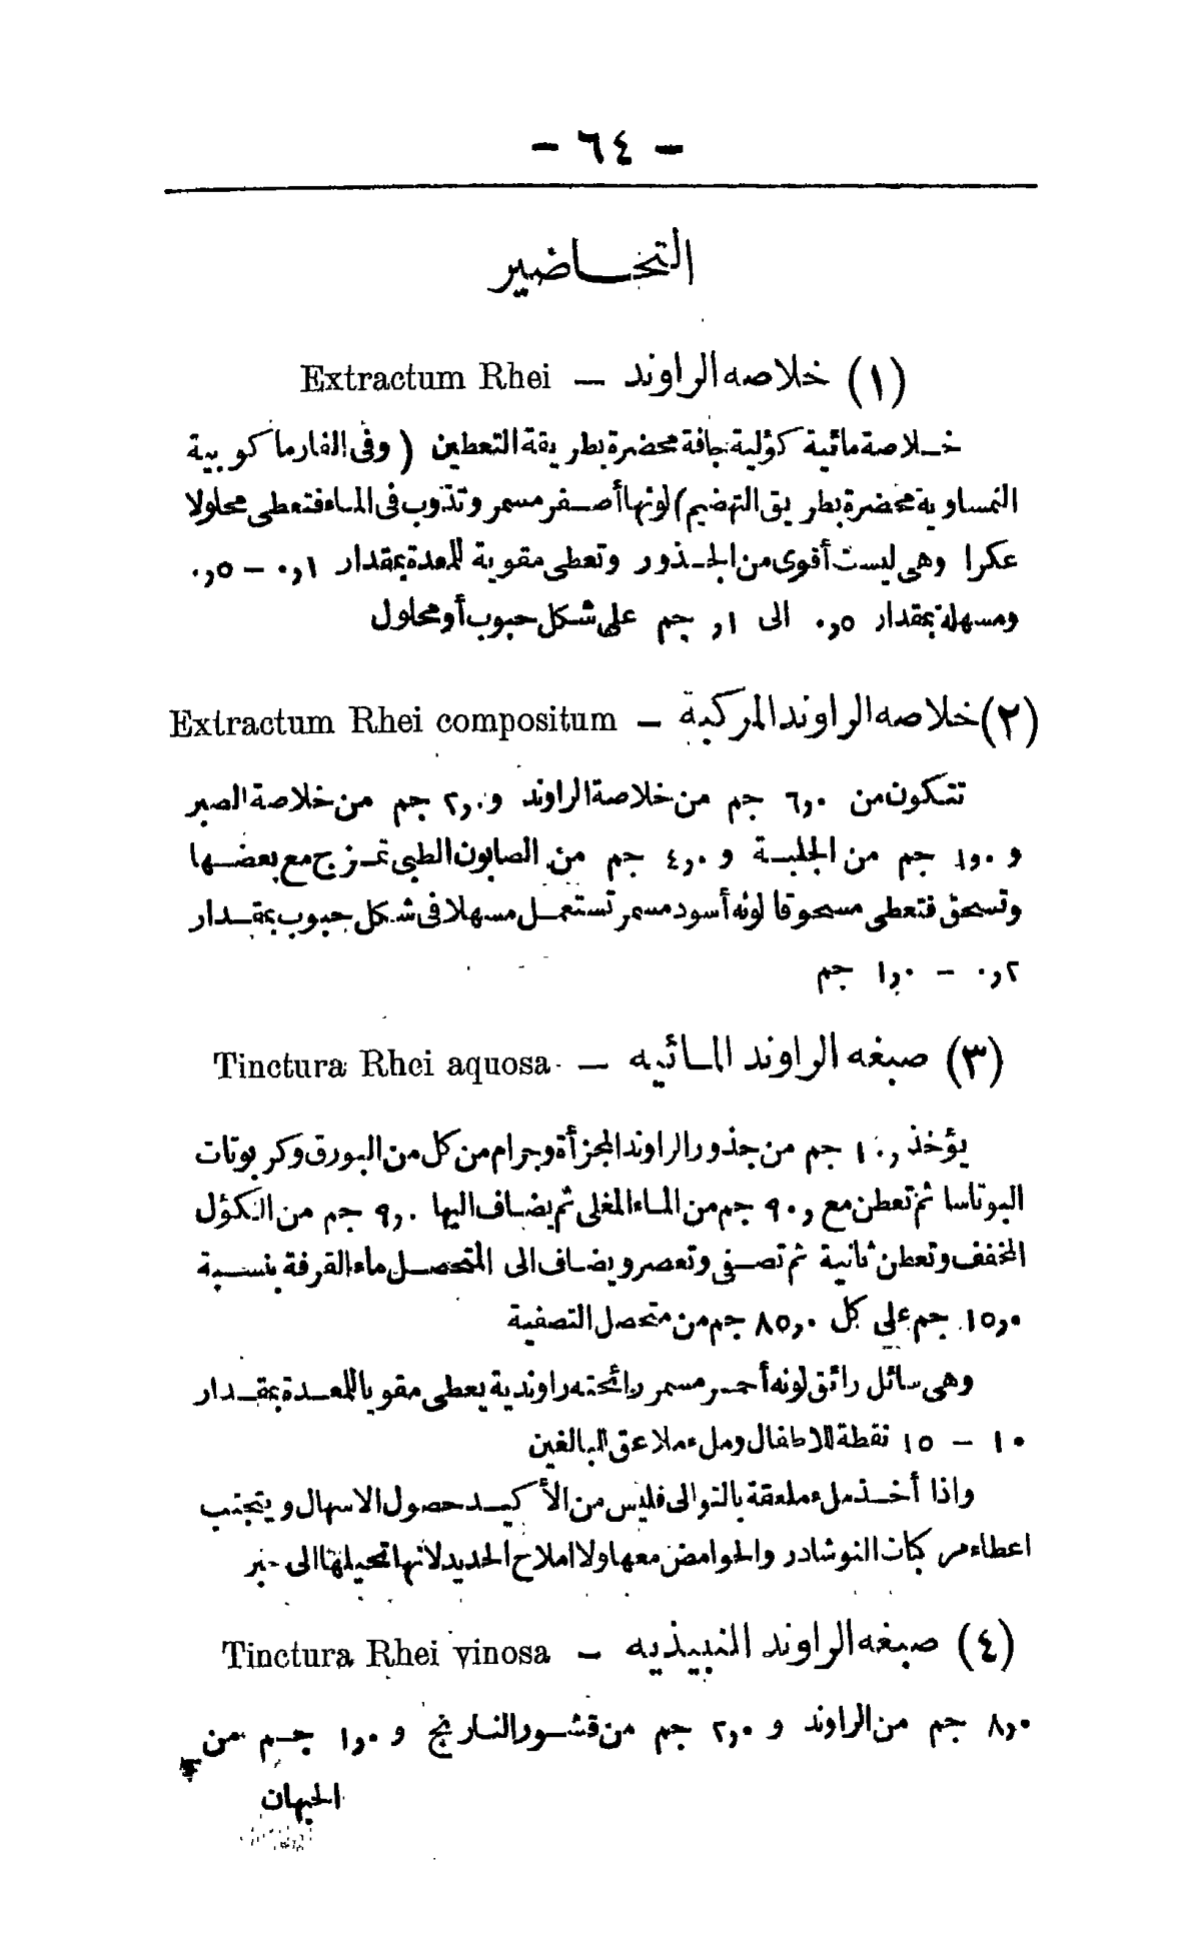 - ٦٤ -
التحاضير
(١) خلاصه الراوند — Extractum Rhei
خلاصة مائية كؤلية جافة محضرة بطريقة التعطين (وفى الفارما كوبية
النمساوية محضرة بطريق التهضيم) لونها أصفر مسمر وتذوب فى الماء فتعطى محلولا
عكرا وهى ليست أقوى من الجذور وتعطى مقوية للمعدة بمقدار ٠٫١ — ٠٫٥
ومسهلة بمقدار ٠٫٥ الى ١٫ جم على شكل حبوب أو محلول
(٢) خلاصه الراوند المركبة — Extractum Rhei compositum
تتكون من ٦٫٠ جم من خلاصة الراوند و ٢٫٠ جم من خلاصة الصبر
و ١٫٠ جم من الجلبة و ٤٫٠ جم من الصابون الطبى تمزج مع بعضها
وتسحق فتعطى مسحوقا لونه أسود مسمر تستعمل مسهلا فى شكل حبوب بمقدار
٠٫٢ — ١٫٠ جم
(٣) صبغه الراوند المائيه — Tinctura Rhei aquosa
يؤخذ ١٠٫ جم من جذور الراوند المجزأة وجرام من كل من البورق وكربونات
البوتاسا ثم تعطن مع ٩٠٫ جم من الماء المغلى ثم يضاف اليها ٩٫٠ جم من الكؤل
المخفف وتعطن ثانية ثم تصفى وتعصر ويضاف الى المتحصل ماء القرفة بنسبة
١٥٫٠ جم على كل ٨٥٫٠ جم من متحصل التصفية
وهى سائل رائق لونه أحمر مسمر رائحته راوندية يعطى مقويا للمعدة بمقدار
١٠ — ١٥ نقطة للاطفال ومل ء ملاعق للبالغين
واذا أخذ مل ء ملعقة بالتوالى فليس من الأكيد حصول الاسهال ويتجنب
اعطاء مركبات النوشادر والحوامض معها ولا املاح الحديد لانها تحيلها الى حبر
(٤) صبغه الراوند النبيذيه — Tinctura Rhei vinosa
٨٫٠ جم من الراوند و ٢٫٠ جم من قشور النارنج و ١٫٠ جم من
الحبهان